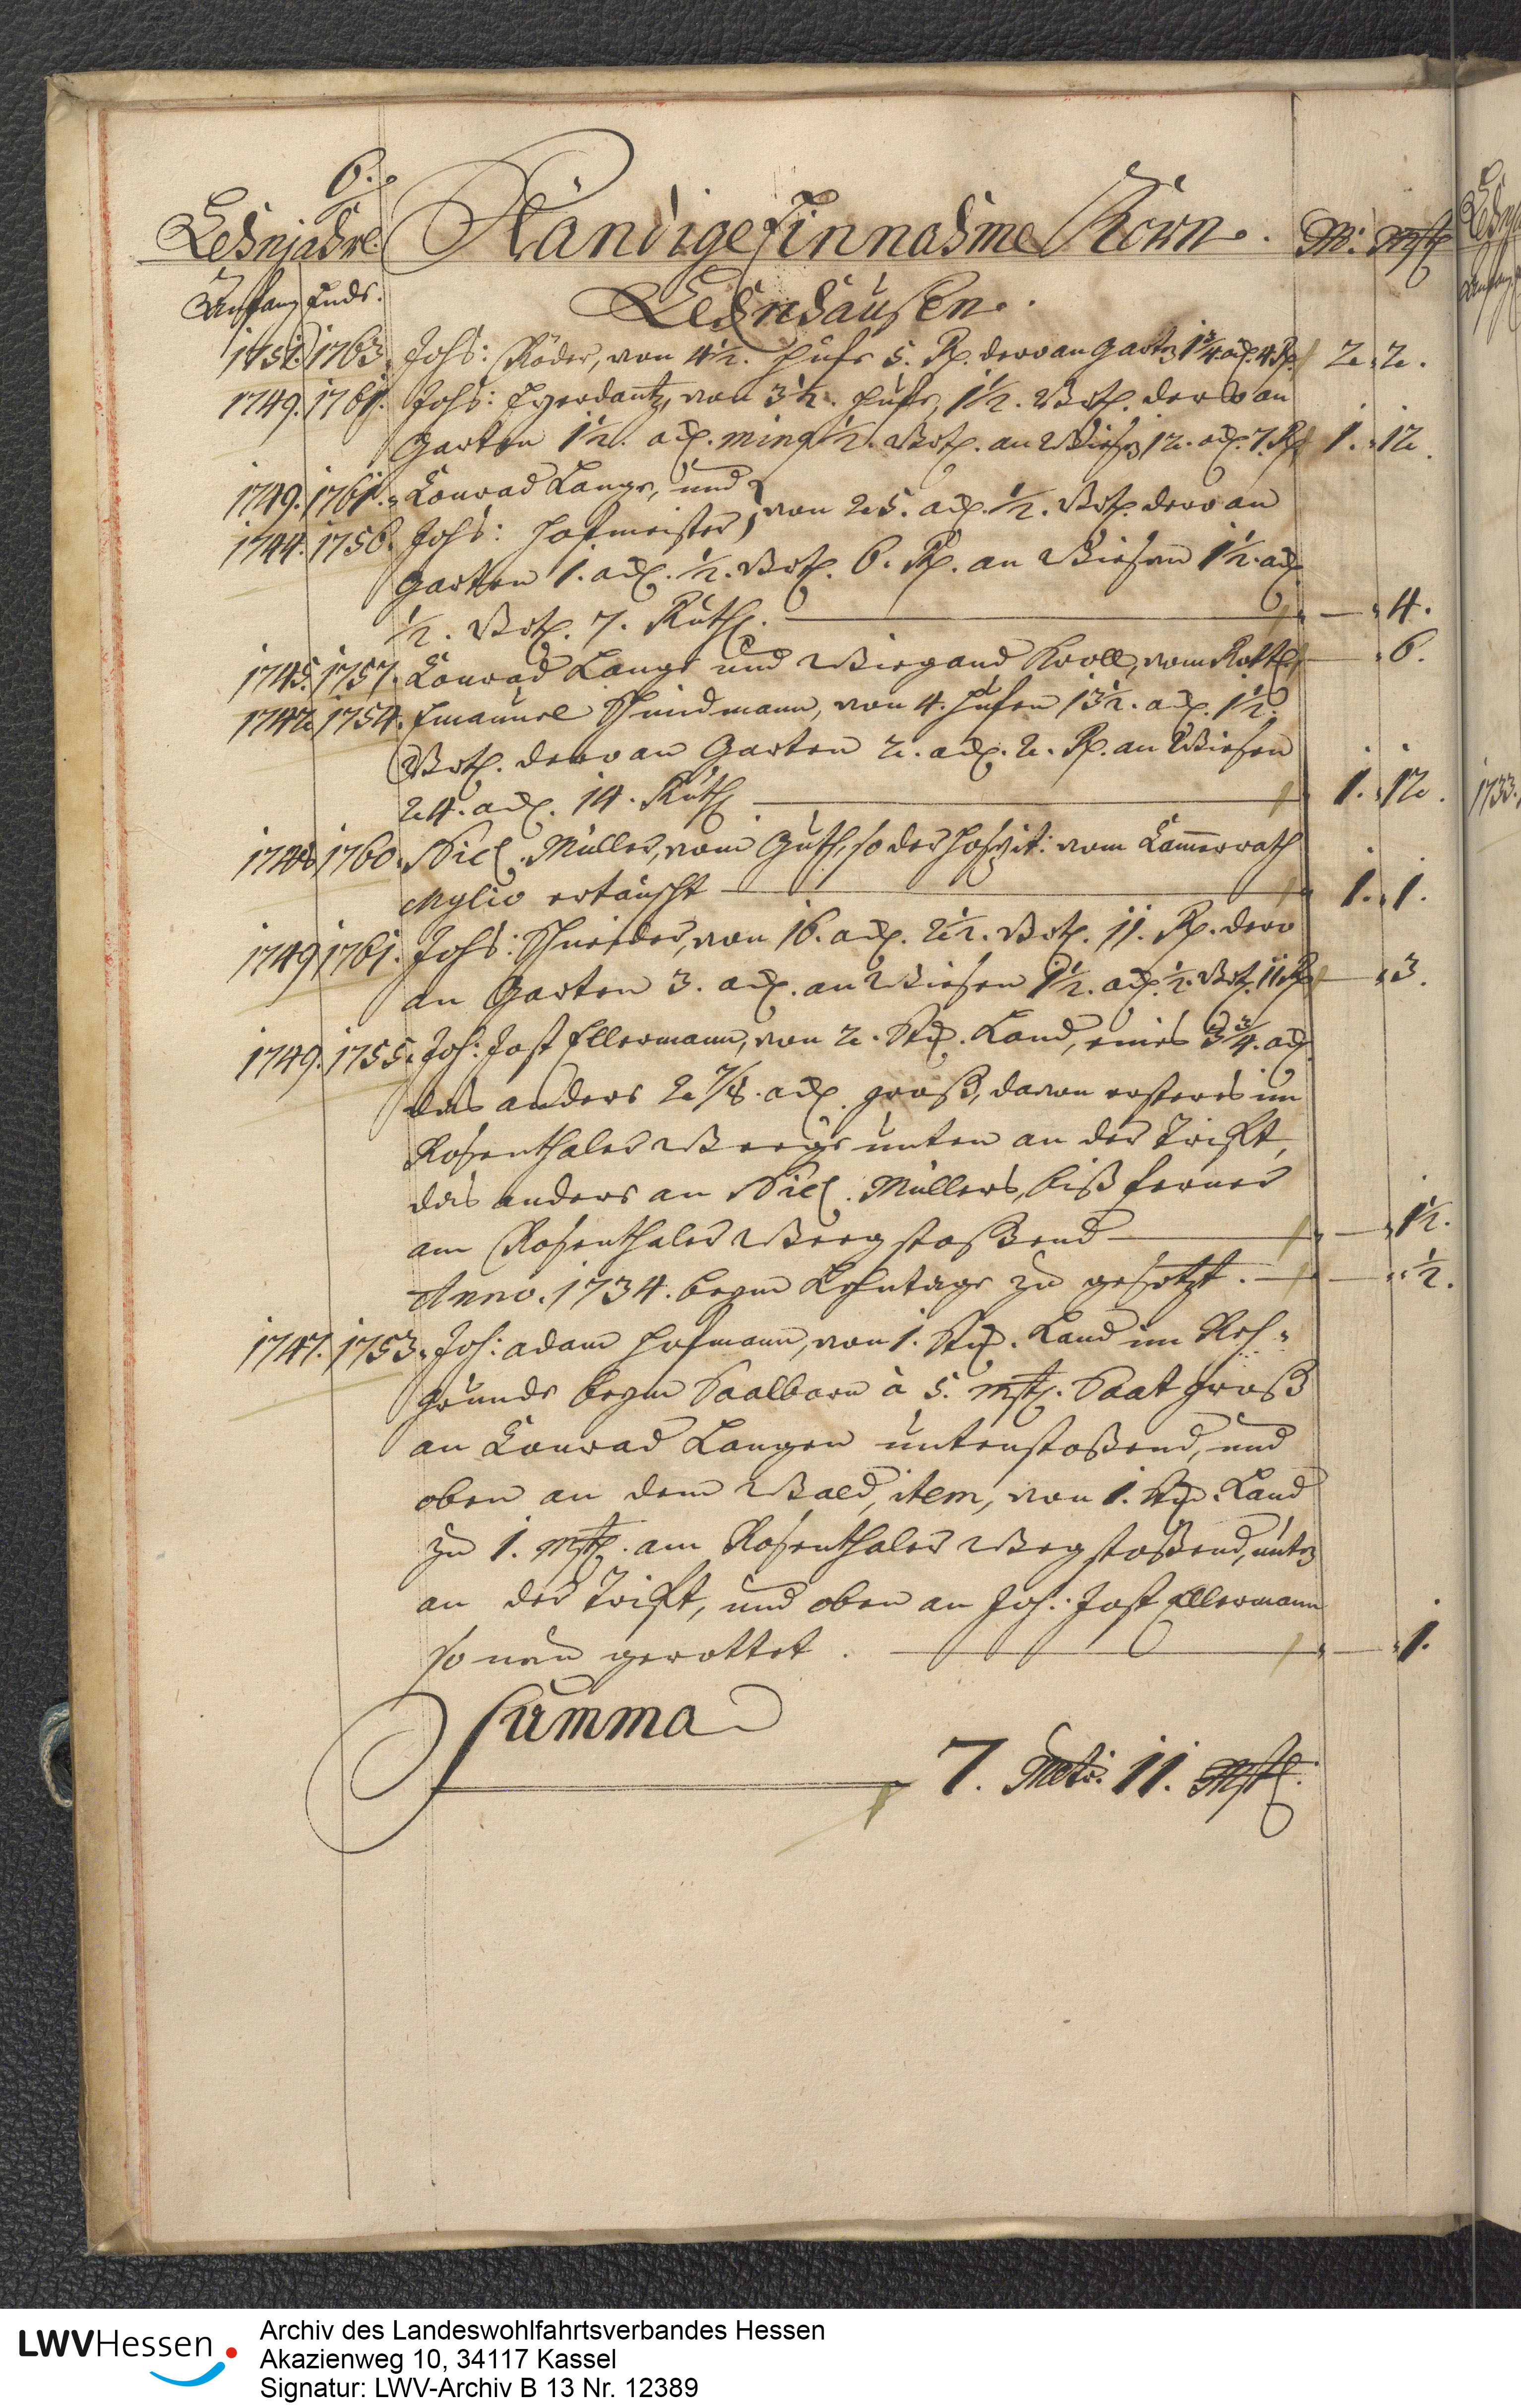 6.
Lehnjahre. Ständige Einnahme Korn. M: Mstl
Anfang Ende. Lehnhausen.
1751. 1763. Johs: Röder, von 4½. Hufe 5. R. dero an Gart 1¾ ack. 4 R. 2. 2.
1749. 1761. Johs: Eyerdantz, von 3½. Hufe, 1½. Vrtl. dero an
Garten 1½. ack. ½. Vrtl. an Wiesen 12. ack. 7. R 1. 12.
1749. 1761. Conrad Lange, und
1744. 1756. Johs: Hofmeister, von 25. ack. ½. Vrtl. dero an
Garten 1. ack. ½. Vrtl. 6. R. an Wiesen 1½. ack
½. Vrtl. 7. Ruth. — 4.
1745. 1757. Conrad Lange und Wiegand Kroll, vom Rottl — 6.
1742. 1754. Emanuel Schmidmann, von 4. Hufen 13½. ack. 1½.
Vrtl. dero an Garten 2. ack. 2. R. an Wiesen
24. ack. 14. Ruth — 1. 12.
1748 1760. Nicl. Müller, vom Guth, so der Hospit: vom Cammerrath
Mylio ertauscht — 1. 1.
1749 1761. Johs: Schneider, von 16. ack. 2½. Vrtl. 11. R. dero
an Garten 3. ack. an Wiesen 1½. ack. ½. Vrtl. 11 R — 3.
1749. 1755. Joh: Jost Ellermann, von 2. Stck. Land, eines 3¾. ack
das andere 2 7/8. ack. groß, davon ersteres im
Rosenthaler Wege unten an der Trift,
das andere an Nicl. Müllers, biß ferner
am Rosenthaler Weeg stoßend — 1½.
Anno. 1734. beym Lehntage zu gesetzt. — ½.
1747. 1753. Joh: Adam Hofmann, von 1. Stck. Land im Reh-
grunde beym Saalborn à 5. Mstl. Saat groß
an Conrad Langen untenstoßend, und
oben an dem Wald, item, von 1. Stck. Land
zu 1. Mstl. am Rosenthaler Weg stoßend, unten
an der Trift, und oben an Joh: Jost Ellermann
so neu gerottet. — 1.
Summa
7. Mött: 11. Mstl.
LWVHessen
Archiv des Landeswohlfahrtsverbandes Hessen
Akazienweg 10, 34117 Kassel
Signatur: LWV-Archiv B 13 Nr. 12389